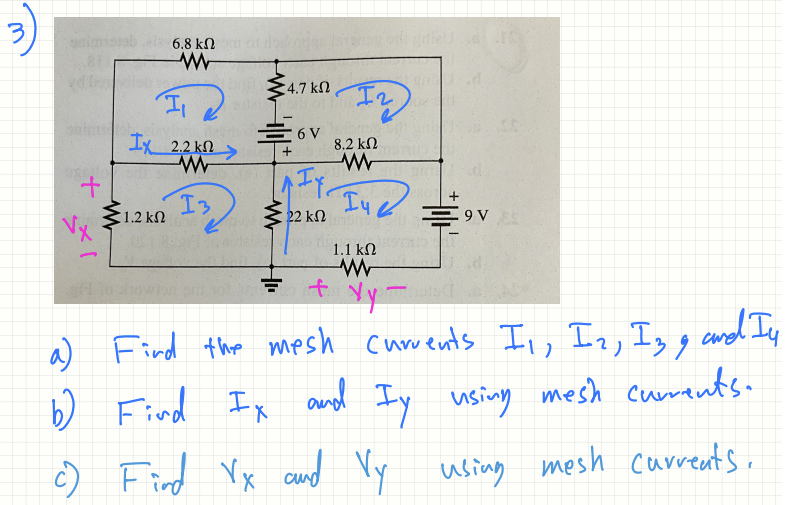 3)
6.8 kΩ
4.7 kΩ
I1
I2
6 V
−
+
Ix
2.2 kΩ
8.2 kΩ
+
Vx
−
1.2 kΩ
I3
Iy
22 kΩ
I4
+
9 V
−
1.1 kΩ
+ Vy −
a) Find the mesh currents I1, I2, I3, and I4
b) Find Ix and Iy using mesh currents.
c) Find Vx and Vy using mesh currents.